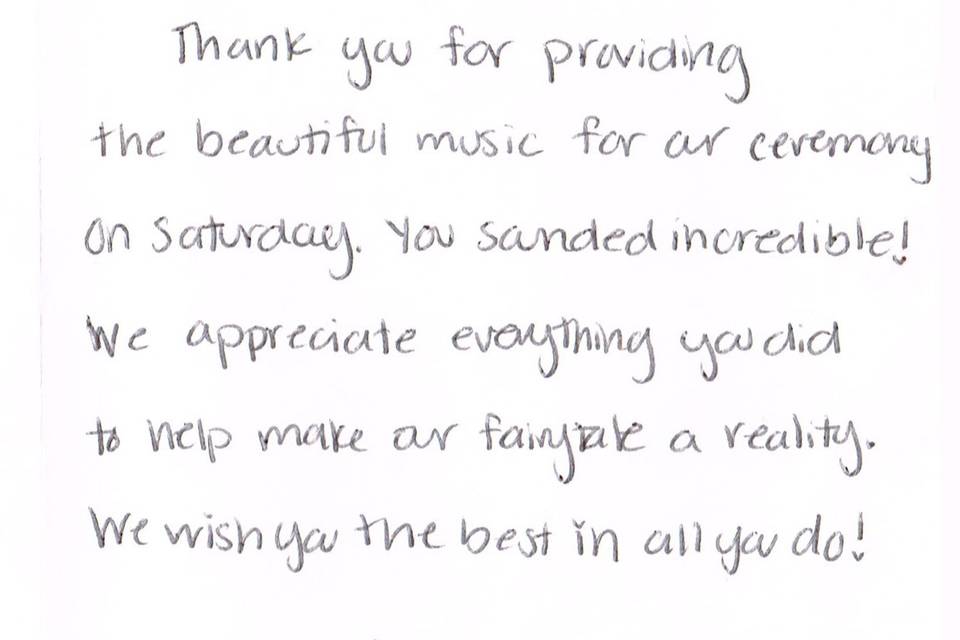 Thank you for providing
the beautiful music for our ceremony
on Saturday. You sounded incredible!
We appreciate everything you did
to help make our fairytale a reality.
We wish you the best in all you do!